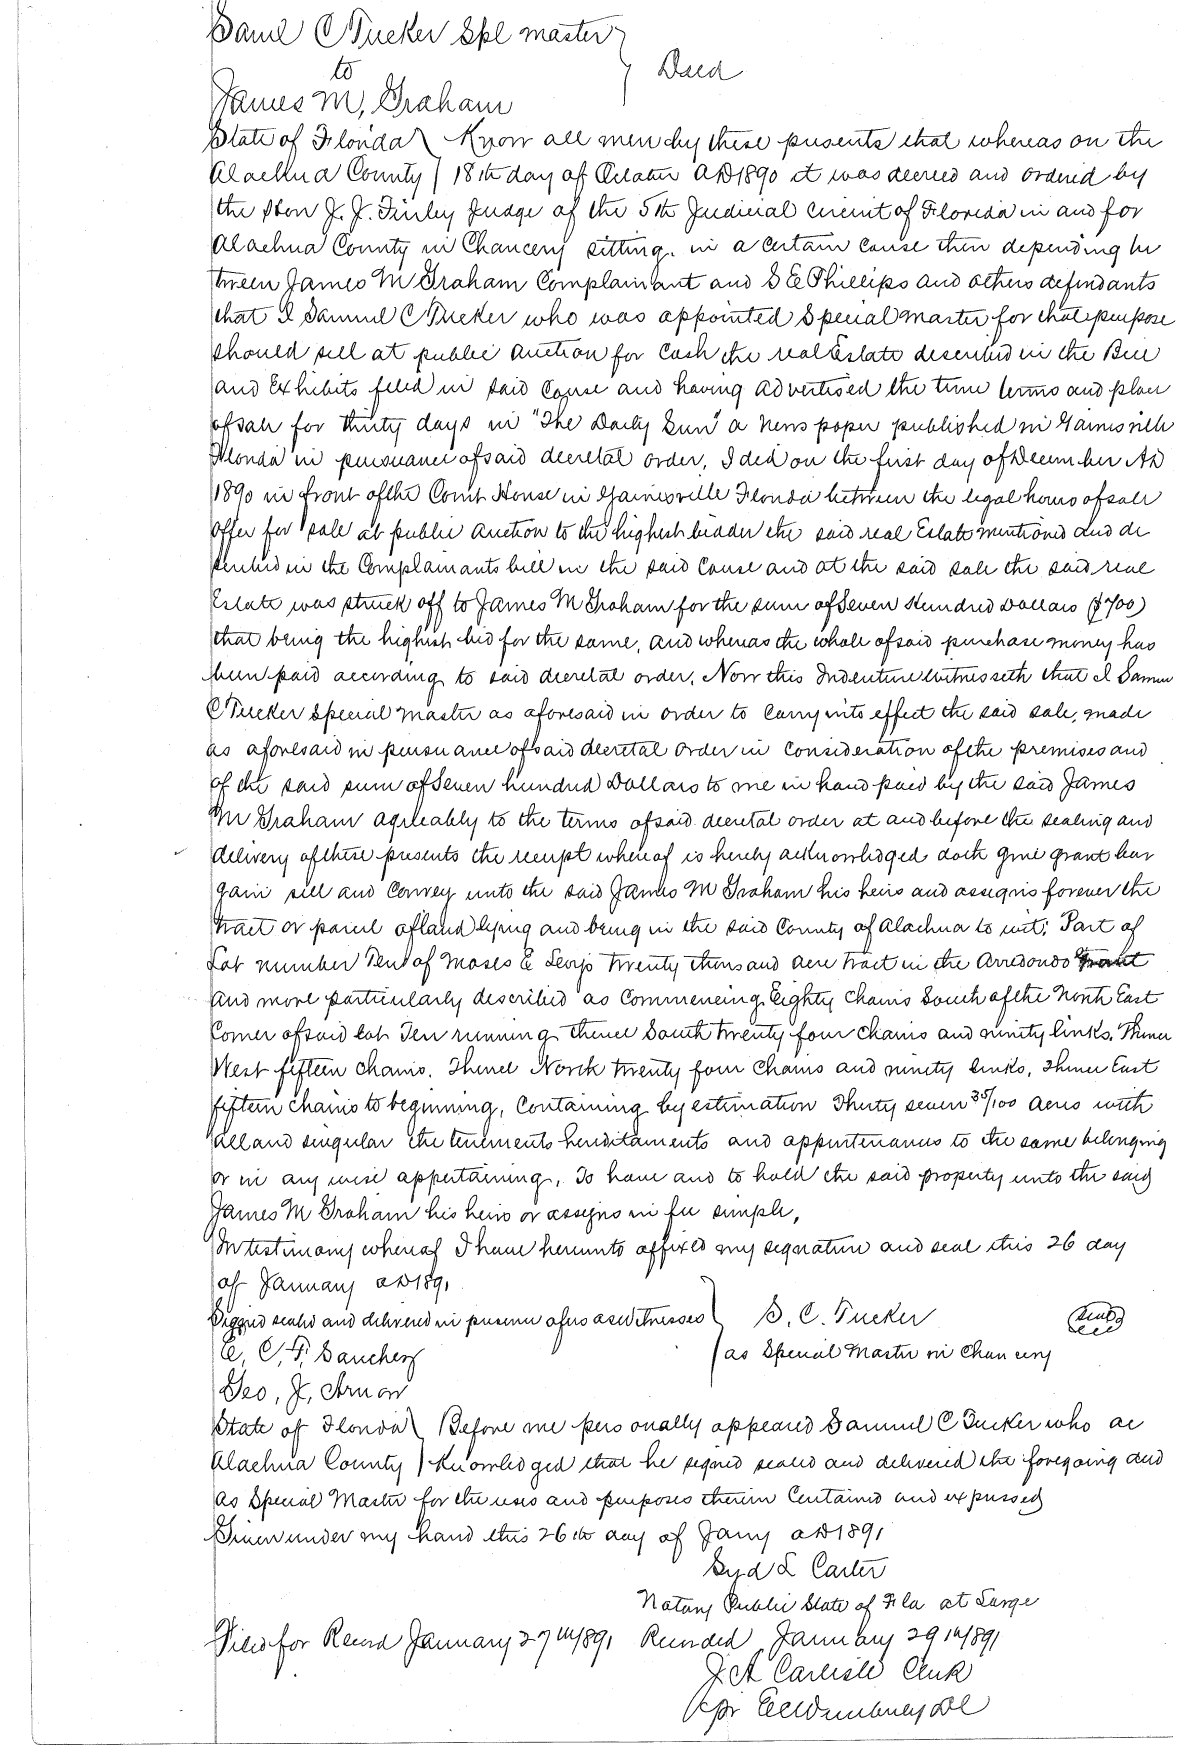 Saml C Tucker Spl master
to } Deed
James M, Graham
State of Florida } Know all men by these presents that whereas on the
Alachua County } 18th day of October AD 1890 it was decreed and ordered by
the Hon J. J. Finley Judge of the 5th Judicial Circuit of Florida in and for
Alachua County in Chancery sitting. in a certain cause then depending be
tween James M Graham Complainant and S E Phillips and others defendants
that I Samuel C Tucker who was appointed Special Master for that purpose
should sell at public auction for cash the real Estate described in the Bill
and Exhibits filed in said Cause and having advertised the time terms and place
of sale for thirty days in "The Daily Sun" a News paper published in Gainesville
Florida in pursuance of said decretal order, I did on the first day of December AD
1890 in front of the Court House in Gainesville Florida between the legal hours of sale
offer for sale at public auction to the highest bidder the said real Estate mentioned and de
scribed in the Complainants bill in the said Cause and at the said sale the said real
Estate was struck off to James M Graham for the sum of Seven Hundred Dollars ($700)
that being the highest bid for the same, and whereas the whole of said purchase money has
been paid according to said decretal order, Now this Indenture witnesseth that I Samuel
C Tucker Special Master as aforesaid in order to carry into effect the said sale, made
as aforesaid in pursuance of said decretal order in consideration of the premises and
of the said sum of Seven hundred Dollars to me in hand paid by the said James
M Graham agreeably to the terms of said decretal order at and before the sealing and
delivery of these presents the receipt whereof is hereby acknowledged doth give grant bar
gain sell and Convey unto the said James M Graham his heirs and assigns forever the
tract or parcel of land lying and being in the said County of Alachua to wit; Part of
Lot number Ten of Moses E Levys twenty thousand acre tract in the Arredondo Grant
and more particularly described as Commencing Eighty Chains South of the North East
Corner of said lot Ten running thence South twenty four chains and ninety links. Thence
West fifteen chains. Thence North twenty four Chains and ninety links, Thence East
fifteen chains to beginning, Containing by estimation Thirty seven 35/100 acres with
all and singular the tenements hereditaments and appurtenances to the same belonging
or in any wise appertaining, To have and to hold the said property unto the said
James M Graham his heirs or assigns in fee simple,
In testimony whereof I have hereunto affixed my signature and seal this 26 day
of January AD 1891
Signed sealed and delivered in presence of us as witnesses } S. C. Tucker seal
E, C, F. Sanchez } as Special Master in Chancery
Geo, J, Arnow
State of Florida } Before me personally appeared Samuel C Tucker who ac
Alachua County } knowledged that he signed sealed and delivered the foregoing deed
as Special Master for the uses and purposes therein Contained and expressed
Given under my hand this 26th day of Jany AD 1891
Syd L Carter
Notary Public State of Fla at Large
Filed for Record January 27th/891 Recorded January 29th/891
J. A Carlisle Clerk